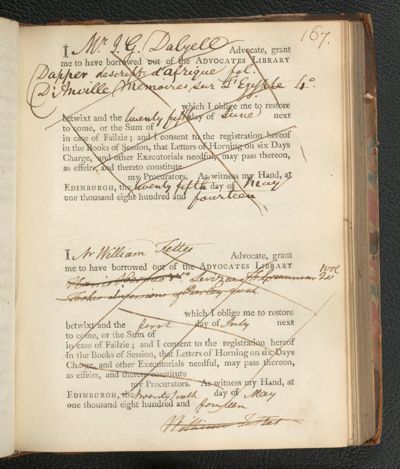 167.
I Mr J. G. Dalyell Advocate, grant
me to have borrowed out of the ADVOCATES LIBRARY
Dapper descript. d'afrique fol.
D'Anville, Memoires sur L'Egypte 4o.
which I oblige me to restore
betwixt and the twenty fifth day of June next
to come, or the Sum of
in case of Failzie; and I consent to the registration hereof
in the Books of Session, that Letters of Horning on six Days
Charge, and other Executorials needful, may pass thereon,
as effeirs, and thereto constitute
my Procurators. As witness my Hand, at
EDINBURGH, the twenty fifth day of May
one thousand eight hundred and fourteen
I, Mr William Tetter Advocate, grant
me to have borrowed out of the ADVOCATES LIBRARY
which I oblige me to restore
betwixt and the first day of July next
to come, or the Sum of
in case of Failzie; and I consent to the registration hereof
in the Books of Session, that Letters of Horning on six Days
Charge, and other Executorials needful, may pass thereon,
as effeirs, and thereto constitute
my Procurators. As witness my Hand, at
EDINBURGH, the twenty sixth day of May
one thousand eight hundred and fourteen
William